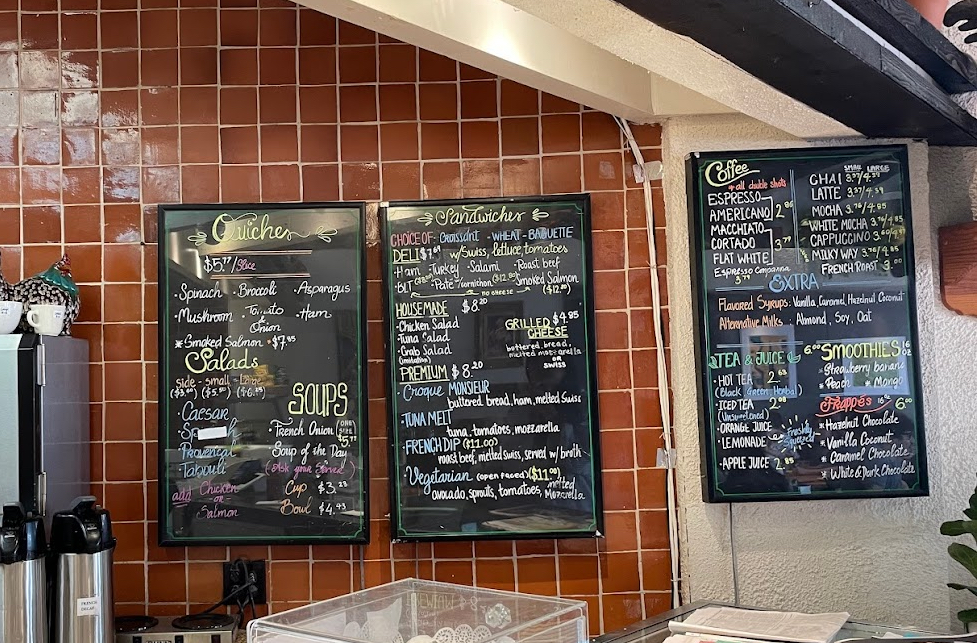 Quiches
$5.77/Slice
Spinach · Broccoli · Asparagus
· Mushroom · Tomato & Onion · Ham
* Smoked Salmon · $7.85
Salads
side - small - Large
· Caesar
Provencal
Tabouli
add Chicken
or
Salmon
SOUPS
French Onion ONE SIZE
Soup of the Day
(Ask your Server)
Cup $3.
Bowl $4.
Sandwiches
CHOICE OF · Croissant - WHEAT - BAGUETTE
DELI w/Swiss, lettuce, tomatoes
· Ham · Turkey · Salami · Roast beef
· BLT · Pate/cornichon · Smoked Salmon
NO CHEESE
HOUSEMADE $8.20
· Chicken Salad
· Tuna Salad
· Crab Salad
(imitation)
GRILLED $4.95
CHEESE
buttered bread,
melted mozzarella
OR
SWISS
PREMIUM $8.20
· Croque MONSIEUR
buttered bread, ham, melted Swiss
· TUNA MELT
tuna, tomatoes, mozzarella
· FRENCH DIP ($11.00)
roast beef, melted Swiss, served w/ broth
· Vegetarian (OPEN FACED) ($11.00)
avocado, sprouts, tomatoes, melted Mozzarella
Coffee
* all double shots
ESPRESSO
AMERICANO 2.86
MACCHIATO
CORTADO
FLAT WHITE 3.77
Espresso Companna
3.77
SMALL LARGE
CHAI
LATTE
MOCHA
WHITE MOCHA
CAPPUCCINO
MILKY WAY
FRENCH ROAST 3.00
EXTRA
Flavored Syrups: Vanilla, Caramel, Hazelnut, Coconut
Alternative Milks: Almond, Soy, Oat
TEA & JUICE
· HOT TEA 2.63
(Black Green Herbal)
· ICED TEA
(Unsweetened)
· ORANGE JUICE
· LEMONADE
Freshly
Squeezed
· APPLE JUICE 2.85
6.00 SMOOTHIES 16 oz
* Strawberry banana
* Peach * Mango
Frappés 6.00
* Hazelnut Chocolate
* Vanilla Coconut
* Caramel Chocolate
* White & Dark Chocolate
FRENCH
DECAF